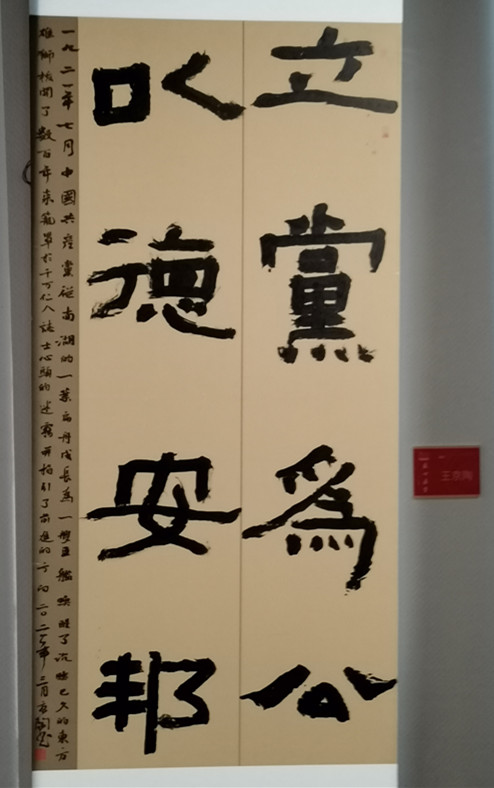 立黨爲公
以德安邦
一九二一年七月中國共產黨從南湖的一葉扁舟成長爲一艘巨艦喚醒了沉睡已久的東方
雄獅撥開了數百年來籠罩於千万仁人誌士心頭的迷霧并指引了前進的方向二〇二年三月京陶
王京陶